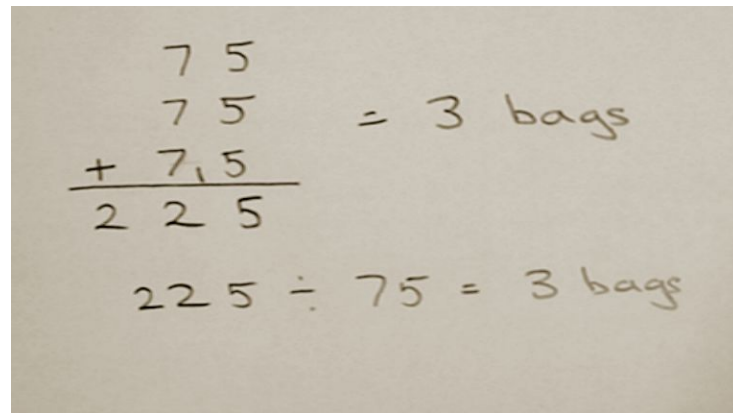 7 5
7 5 = 3 bags
+ 7 1 5
2 2 5
225 ÷ 75 = 3 bags